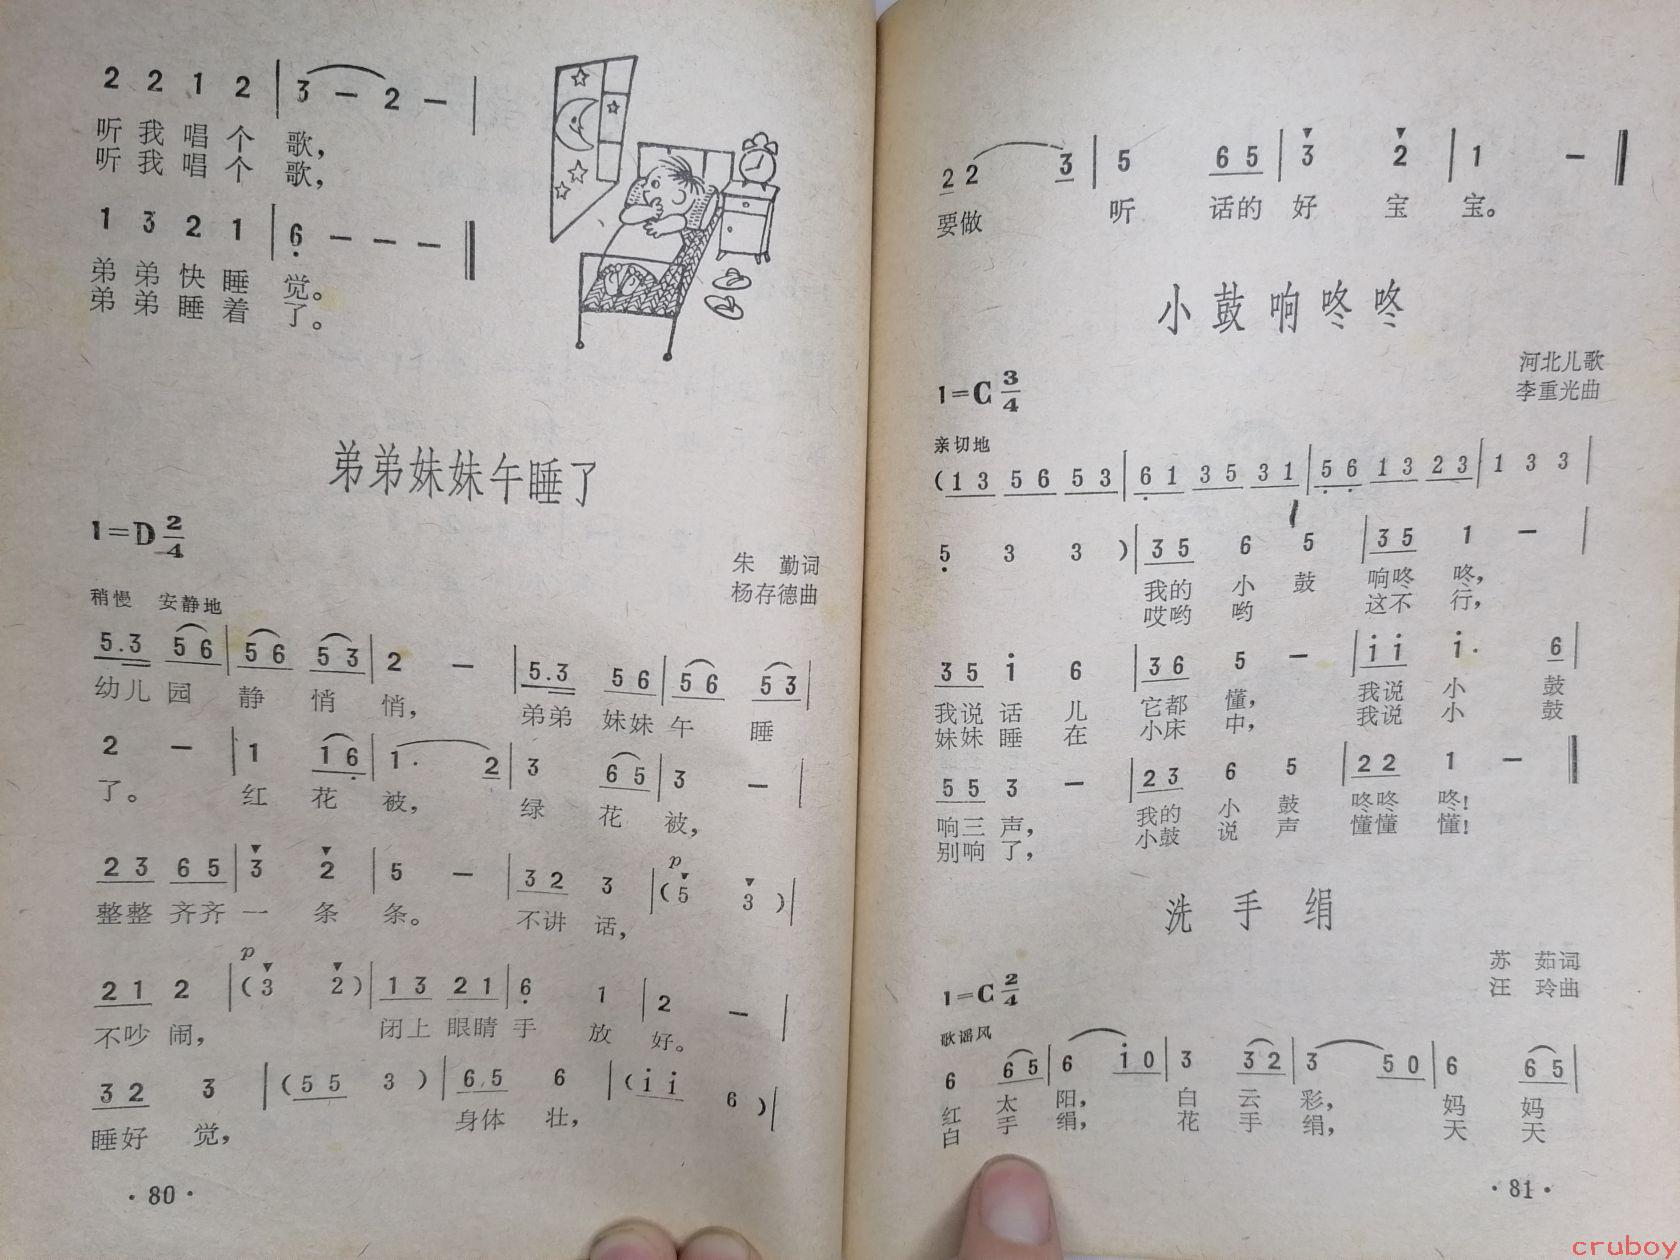 2 2 1 2 | 3 — 2 — |
听 我 唱 个 歌,
听 我 唱 个 歌,
1 3 2 1 | 6̣ — — — ‖
弟 弟 快 睡 觉。
弟 弟 睡 着 了。
弟弟妹妹午睡了
1=D 2/4
朱 勤词
杨存德曲
稍慢 安静地
5.3 5 6 | 5 6 5 3 | 2 — | 5.3 5 6 | 5 6 5 3 |
幼儿 园 静 悄 悄, 弟弟 妹妹 午 睡
2 — | 1 1 6̣ | 1· 2 | 3 6 5 | 3 — |
了。 红 花 被, 绿 花 被,
2 3 6 5 | 3 2 | 5 — | 3 2 3 | p (5 3) |
整整 齐齐 一 条 条。 不讲 话,
2 1 2 | p (3 2) | 1 3 2 1 | 6̣ 1 | 2 — |
不吵 闹, 闭上 眼睛 手 放 好。
3 2 3 | (5 5 3) | 6.5 6 | (i i 6) |
睡好 觉, 身体 壮,
·80·
2 2 3 | 5 6 5 | 3 2 | 1 — ‖
要做 听 话的 好 宝 宝。
小鼓响咚咚
河北儿歌
李重光曲
1=C 3/4
亲切地
(1 3 5 6 5 3 | 6̣ 1 3 5 3 1 | 5̣ 6̣ 1 3 2 3 | 1 3 3 |
5̣ 3 3 ) | 3 5 6 5 | 3 5 1 — |
我的 小 鼓 响咚 咚,
哎哟 哟 这不 行,
3 5 i 6 | 3 6 5 — | i i i· 6 |
我说 话 儿 它都 懂, 我说 小 鼓
妹妹 睡 在 小床 中, 我说 小 鼓
5 5 3 — | 2 3 6 5 | 2 2 1 — ‖
响三 声, 我的 小 鼓 咚咚 咚!
别响 了, 小鼓 说 声 懂懂 懂!
洗手绢
苏 茹词
汪 玲曲
1=C 2/4
歌谣风
6 6 5 | 6 i 0 | 3 3 2 | 3 5 0 | 6 6 5 |
红 太 阳, 白 云 彩, 妈 妈
白 手 绢, 花 手 绢, 天 天
·81·
cruboy